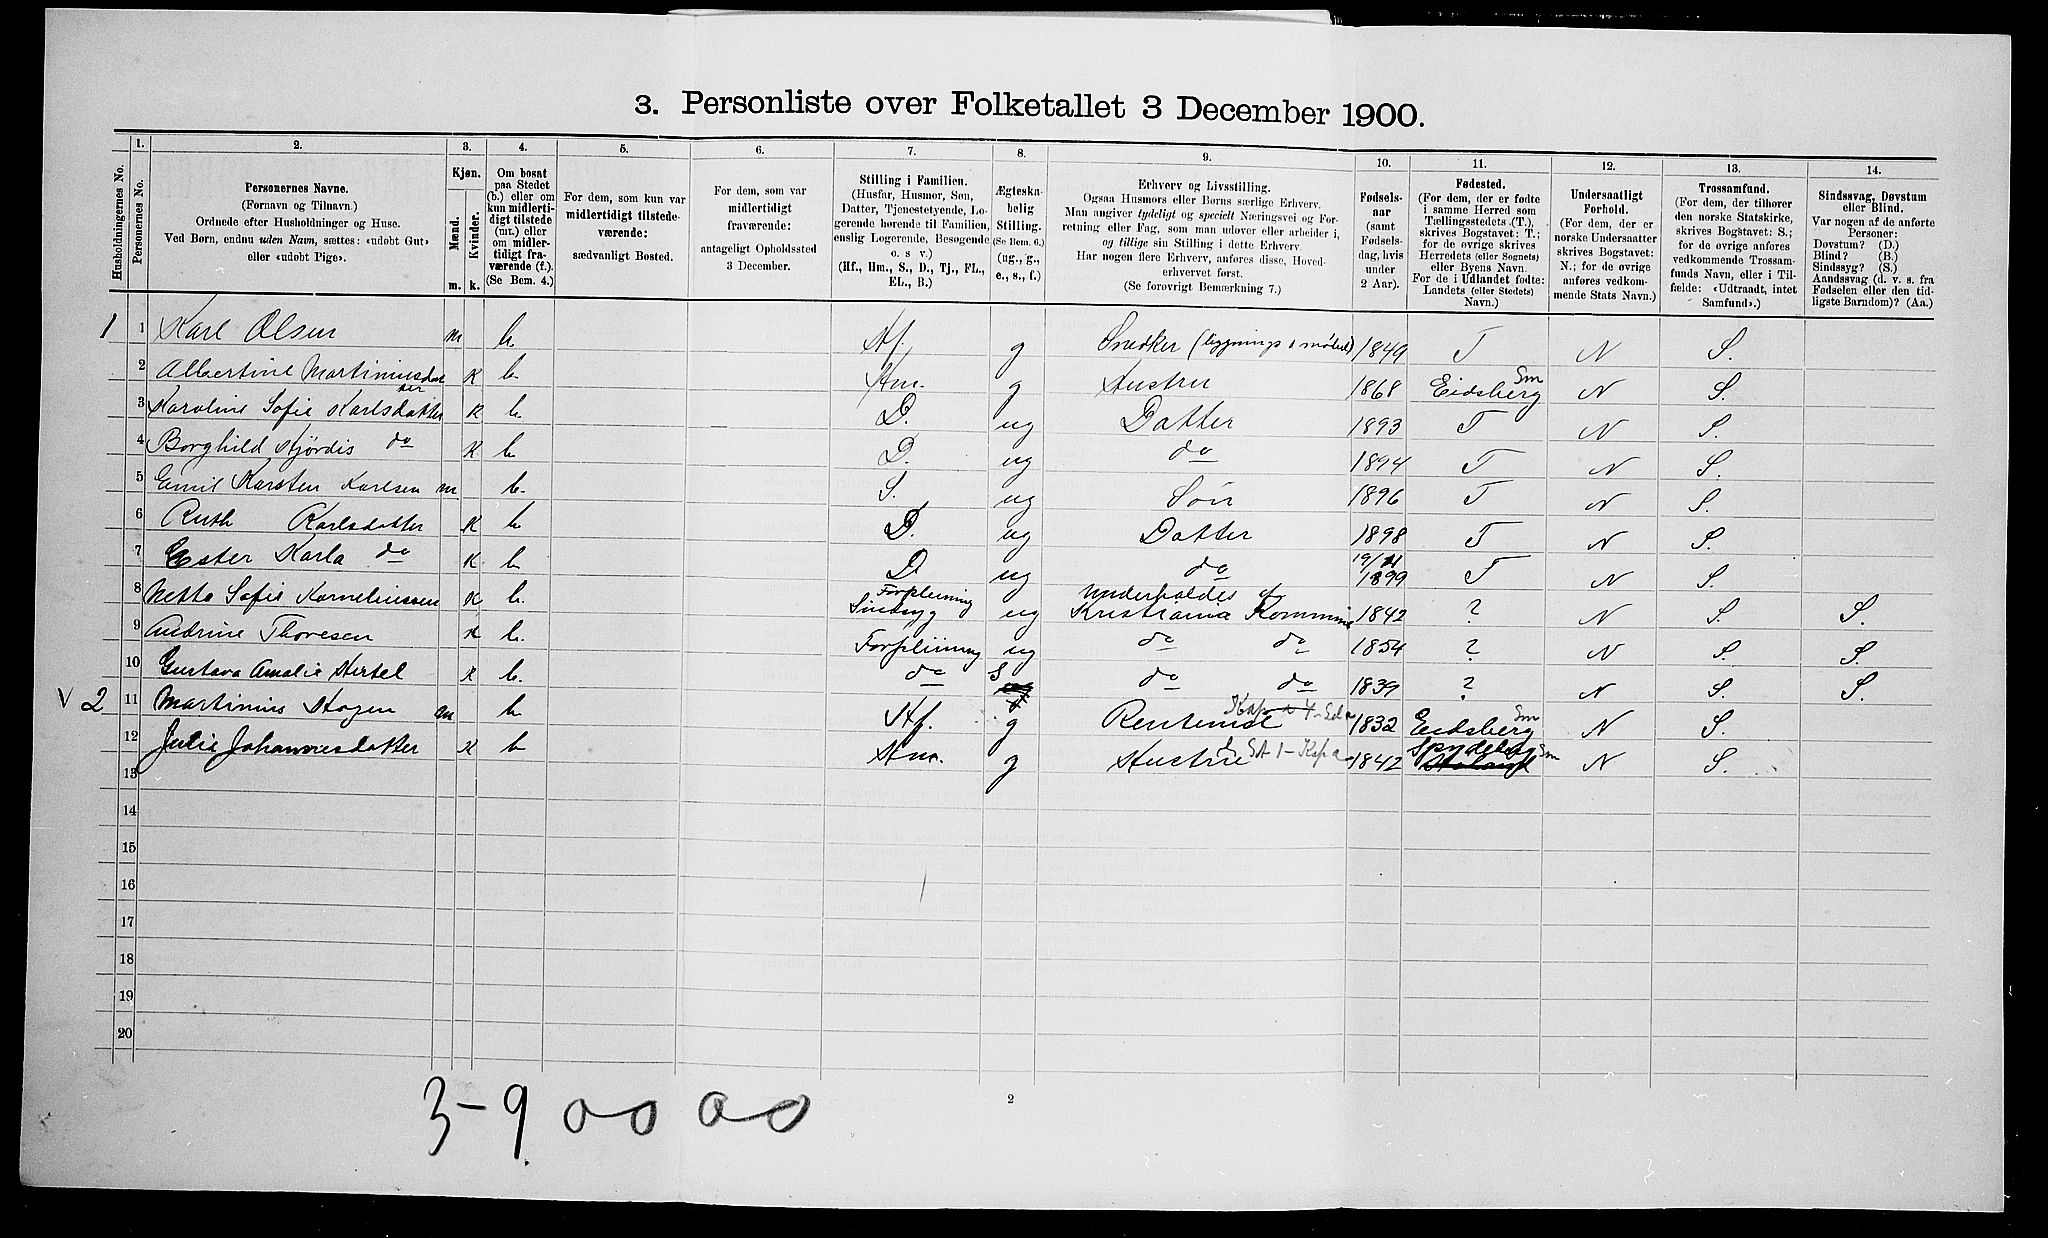 3. Personliste over Folketallet 3 December 1900.
Husholdningernes No.
1.
Personernes No.
2.
Personernes Navne.
(Fornavn og Tilnavn.)
Ordnede efter Husholdninger og Huse.
Ved Børn, endnu uden Navn, sættes: «udøbt Gut»
eller «udøbt Pige».
3.
Kjøn.
Mænd.
Kvinder.
m. k.
4.
Om bosat
paa Stedet
(b.) eller om
kun midlerti-
digt tilstede
(mt.) eller
om midler-
tidigt fra-
værende (f.).
(Se Bem. 4.)
5.
For dem, som kun var
midlertidigt tilstede-
værende:
sædvanligt Bosted.
6.
For dem, som var
midlertidigt
fraværende:
antageligt Opholdssted
3 December.
7.
Stilling i Familien.
(Husfar, Husmor, Søn,
Datter, Tjenestetyende, Lo-
gerende hørende til Familien,
enslig Logerende, Besøgende
o. s v.)
(Hf., Hm., S., D., Tj., FL.,
EL., B.)
8.
Ægteska-
belig
Stilling.
(Se Bem. 6.)
(ug., g.,
e., s., f.)
9.
Erhverv og Livsstilling.
Ogsaa Husmors eller Børns særlige Erhverv.
Man angiver tydeligt og specielt Næringsvei og For-
retning eller Fag, som man udover eller arbeider i,
og tillige sin Stilling i dette Erhverv.
Har nogen flere Erhverv, anføres disse, Hoved-
erhvervet først.
(Se forøvrigt Bemærkning 7.)
10.
Fødsels-
aar
(samt
Fødsels-
dag, hvis
under
2 Aar).
11.
Fødested.
(For dem, der er fødte
i samme Herred som
Tællingsstedets (T.),
skrives Bogstavet: T.;
for de øvrige skrives
Herredets (eller Sognets)
eller Byens Navn.
For de i Udlandet fødte:
Landets (eller Stedets)
Navn.)
12.
Undersaatligt
Forhold.
(For dem, der er
norske Undersaatter
skrives Bogstavet:
N.; for de øvrige
anføres vedkom-
mende Stats Navn.)
13.
Trossamfund.
(For dem, der tilhører
den norske Statskirke,
skrives Bogstavet: S.;
for de øvrige anføres
vedkommende Trossam-
funds Navn, eller i Til-
fælde: «Udtraadt, intet
Samfund».)
14.
Sindssvag, Døvstum
eller Blind.
Var nogen af de anførte
Personer:
Døvstum? (D.)
Blind? (B.)
Sindssyg? (S.)
Aandssvag (d. v. s. fra
Fødselen eller den tid-
ligste Barndom)? (Aa.)
1 1 Karl Olsen m b. Hf. g Snedker (bygnings o møbel) 1849 T N S.
2 Albertine Martiniusdatter k b. Hm. g Hustru 1868 Eidsberg Sm N S.
3 Karoline Sofie Karlsdatter k b. D. ug Datter 1893 T N S.
4 Borghild Hjørdis do k b. D. ug do 1894 T N S.
5 Emil Karsten Karlsen m b. S. ug Søn 1896 T N S.
6 Ruth Karlsdatter k b. D. ug Datter 1898 T N S.
7 Ester Karla do k. b. D ug do 19/11 1899 T N S.
8 Netta Sofie Korneliussen k b. Forpleining Sindssyg ug Underholdes af Kristiania Kommune 1842 ? N S. S.
9 Andrine Thoresen k b. Forpleining ug do do 1854 ? N S. S.
10 Gustava Amalie Hertel k b. do S do do 1839 ? N S. S.
V 2 11 Martinius Hagen m b. Hf. g Rentenist 1832 Eidsberg Sm N S.
12 Julie Johannesdatter k b Hm. g Hustru 1842 Spydeberg Sm N S.
13
14
15
16
17
18
19
20
3-9 00 00
2